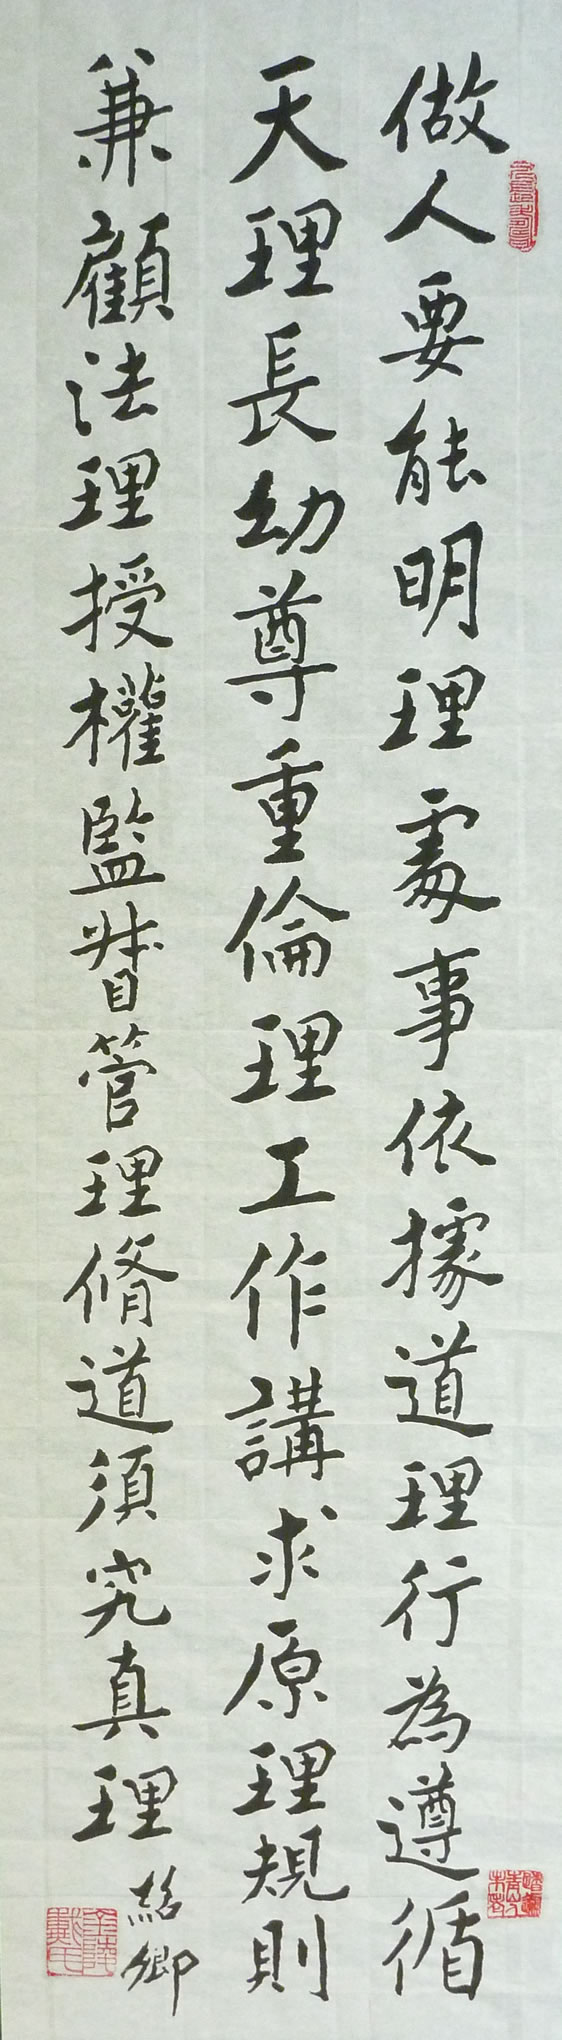 做人要能明理處事依據道理行為遵循
天理長幼尊重倫理工作講求原理規則
兼顧法理授權監督管理脩道須究真理